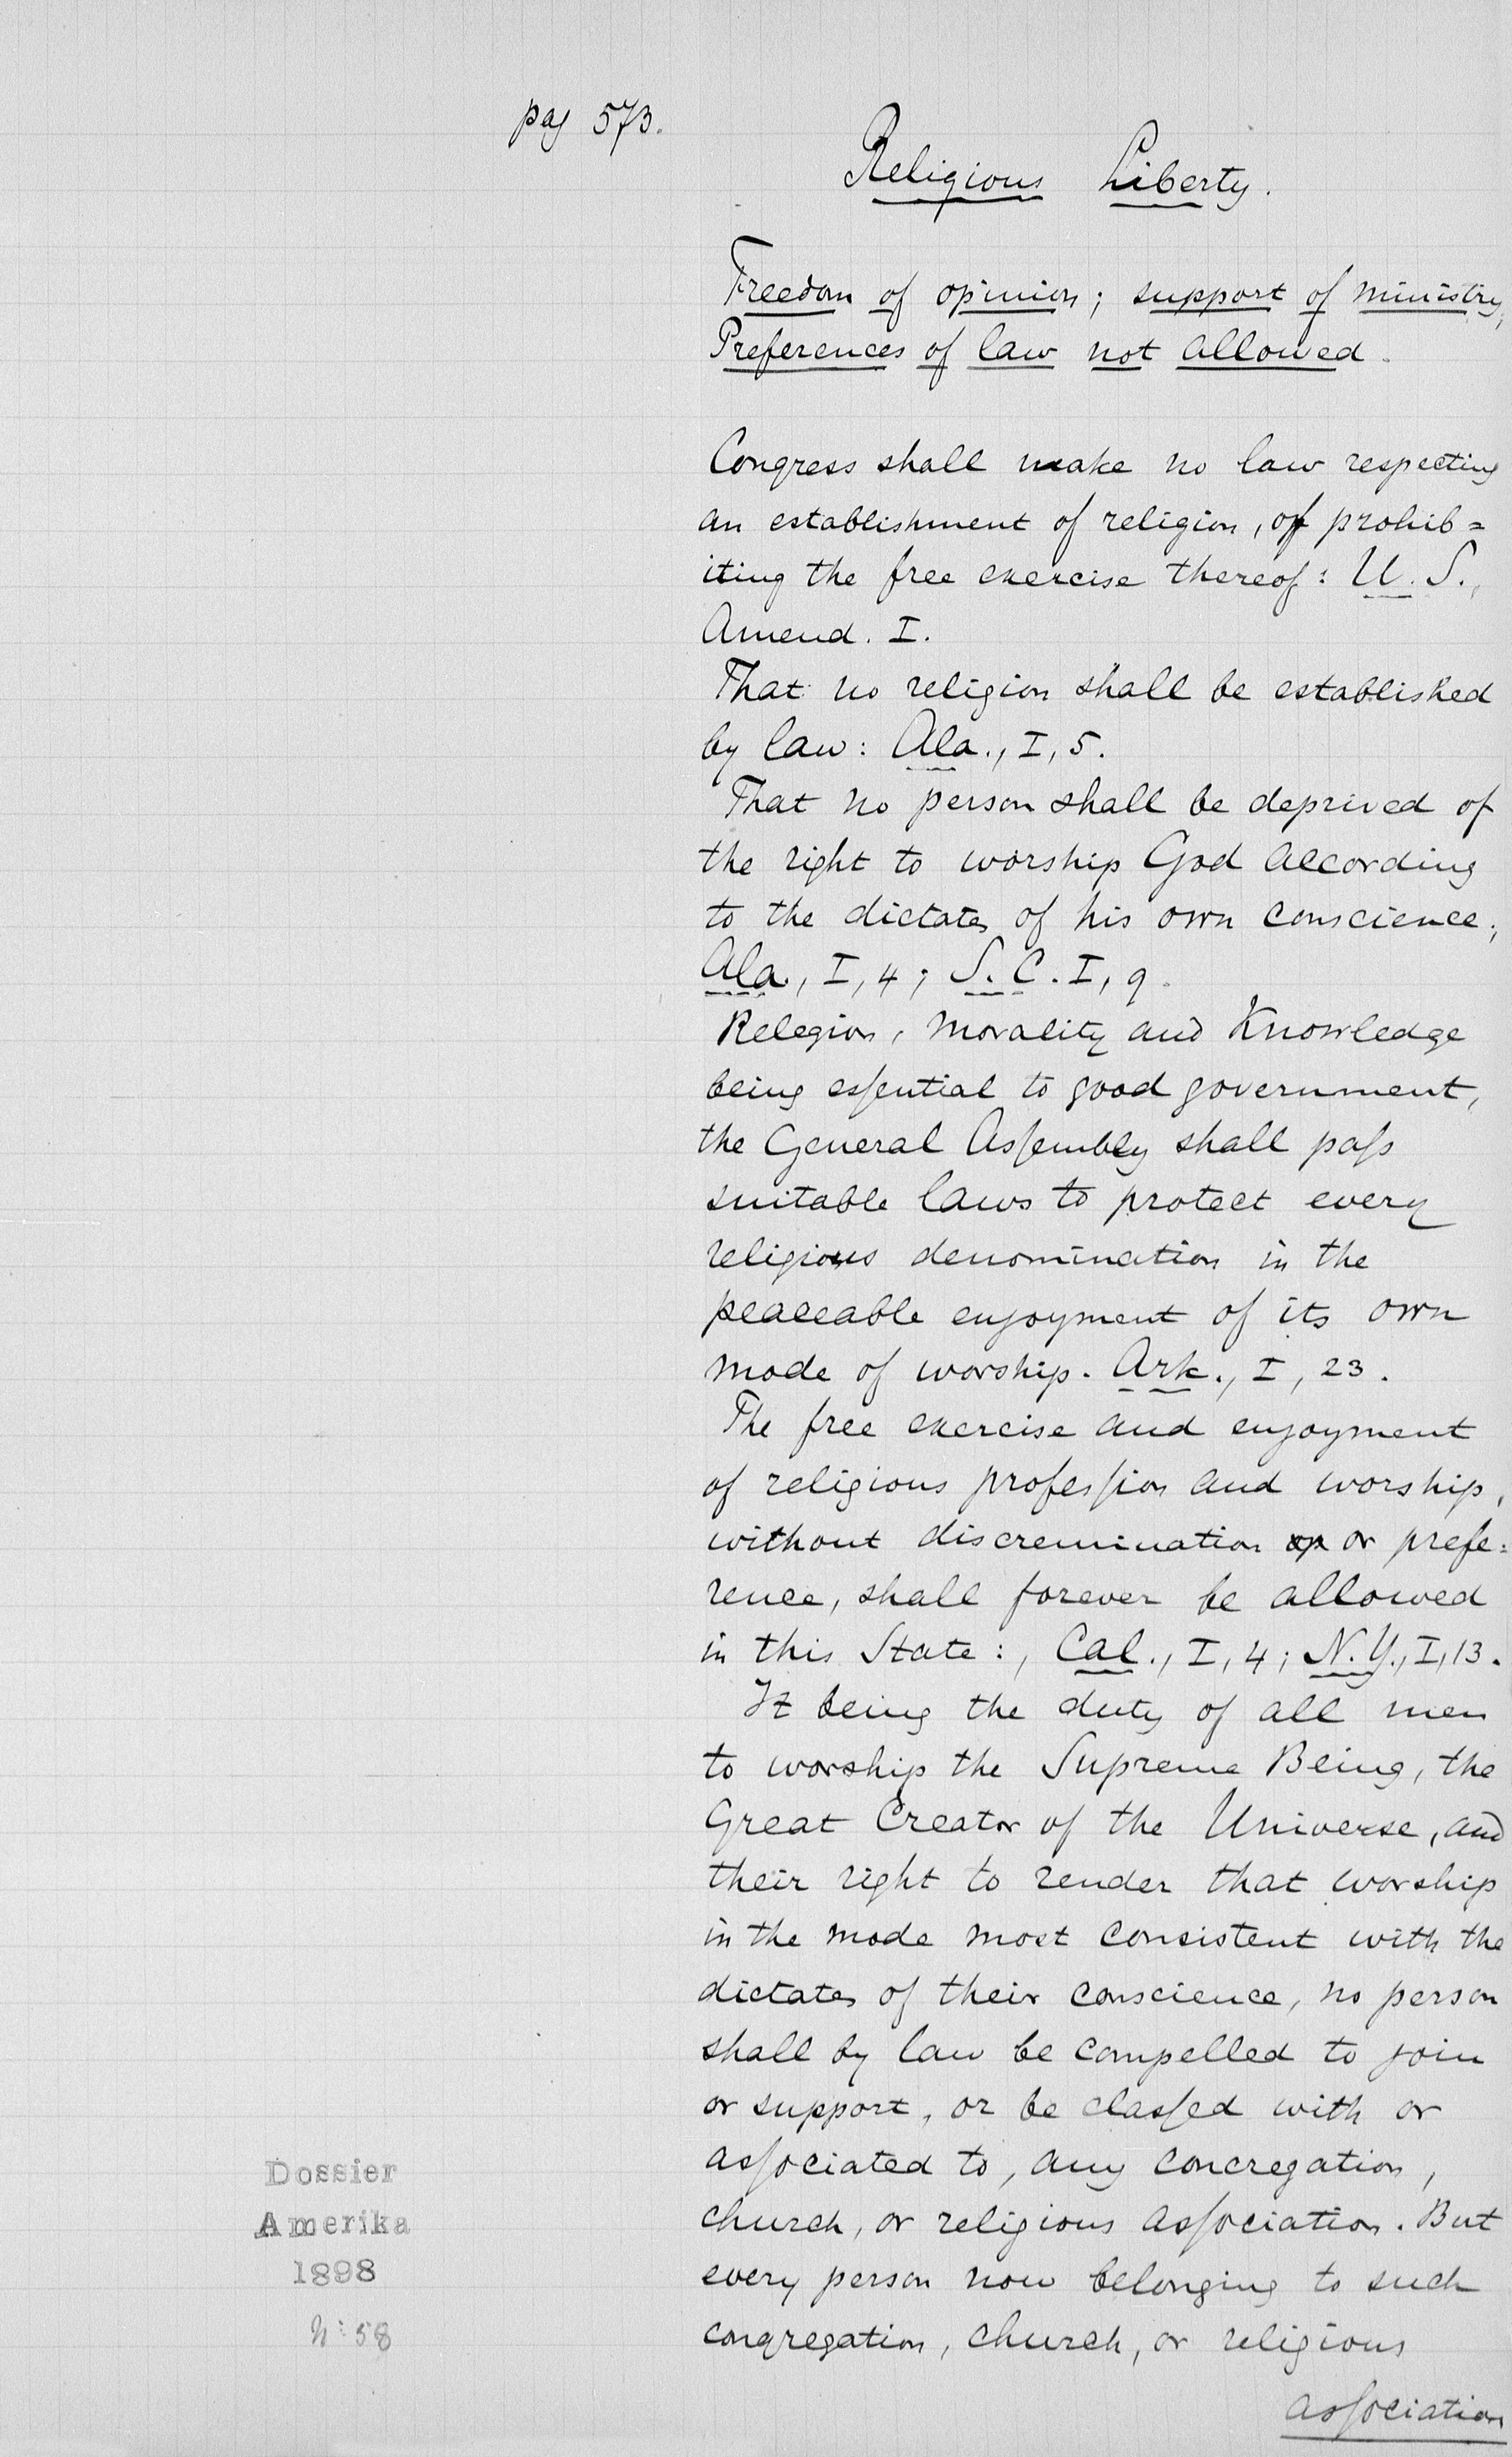 pag 573.
Religious Liberty.
Freedom of opinion; support of ministry,
Preferences of law not allowed.
Congress shall make no law respecting
an establishment of religion, of prohib=
iting the free exercise thereof: U. S.,
Amend. I.
That no religion shall be established
by law: Ala., I, 5.
That no person shall be deprived of
the right to worship God according
to the dictates of his own conscience;
Ala., I, 4; S. C. I, 9.
Relegion, morality and Knowledge
being essential to good government,
the General Assembly shall pass
suitable laws to protect every
religious denomination in the
peaceable enjoyment of its own
mode of worship. Ark., I, 23.
The free exercise and enjoyment
of religious profession and worship,
without discremination or prefe=
rence, shall forever be allowed
in this State:, Cal., I, 4; N.Y., I, 13.
It being the duty of all men
to worship the Supreme Being, the
Great Creator of the Universe, and
their right to render that worship
in the mode most consistent with the
dictates of their conscience, no person
shall by law be compelled to join
or support, or be classed with or
associated to, any concregation,
church, or religious association. But
every person now belonging to such
congregation, church, or religious
association
Dossier
Amerika
1898
N: 58